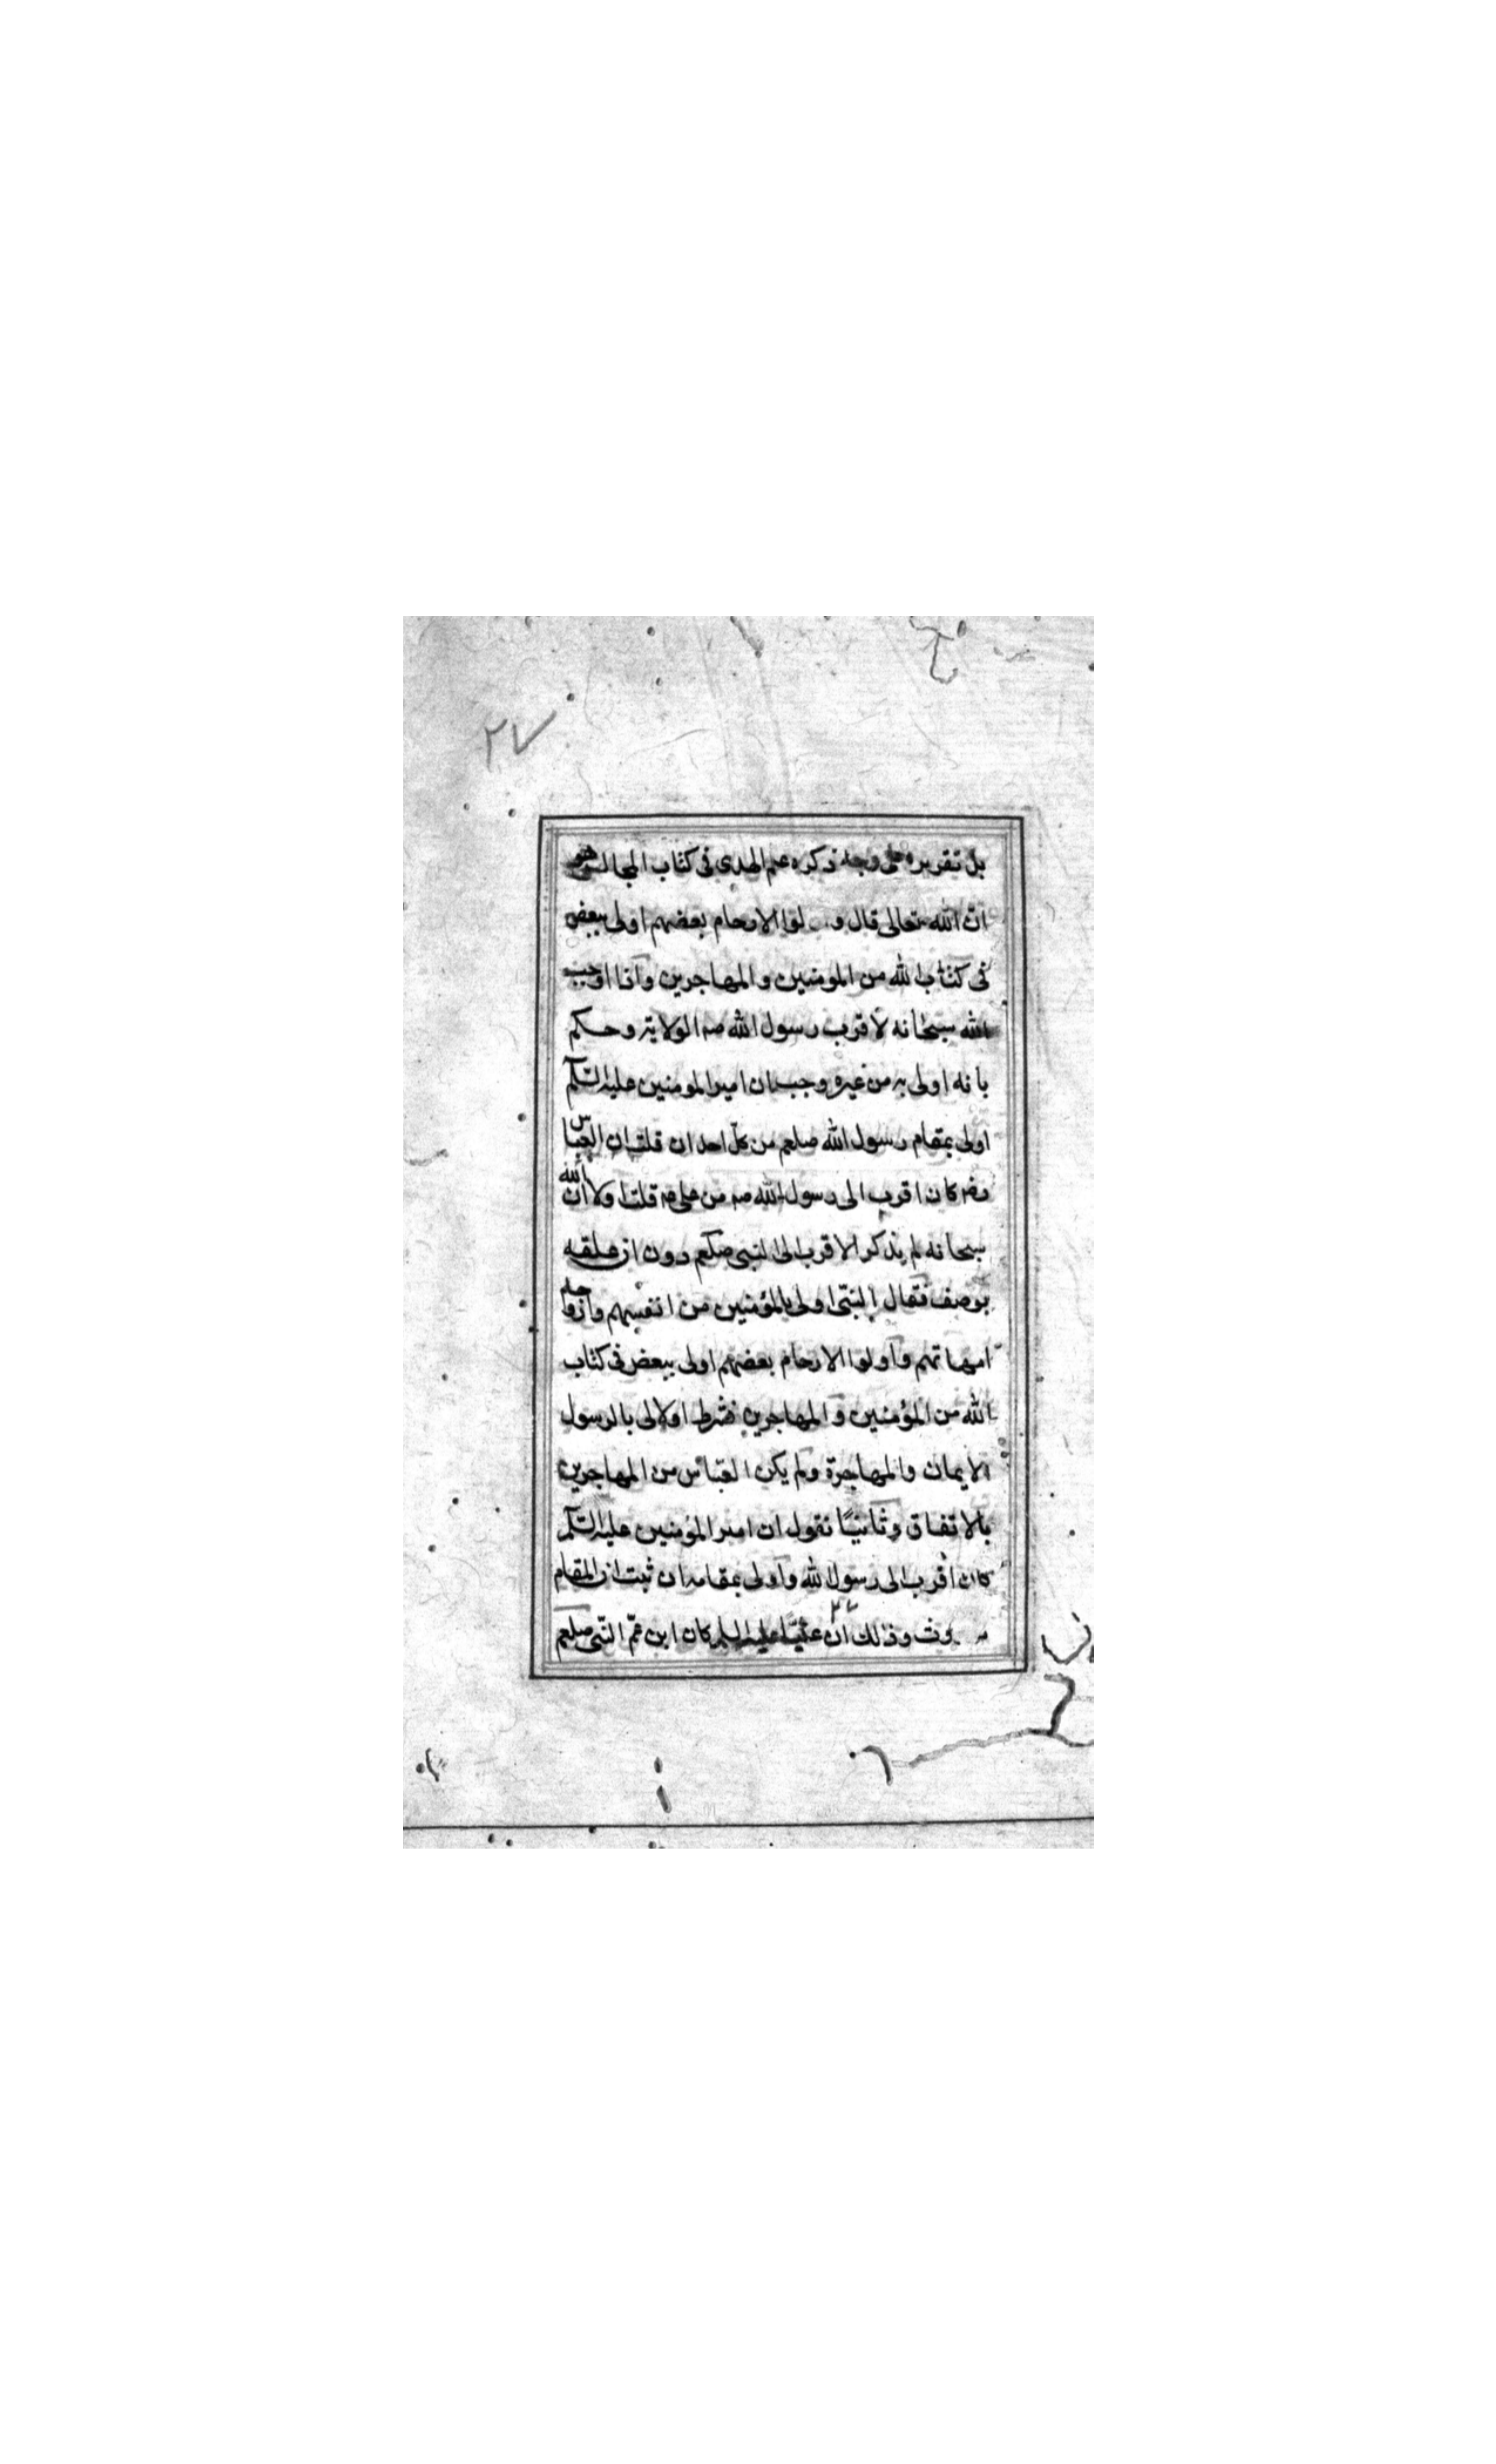 ٢٧
بل تقريره على وجه ذكره علم الهدى فى كتاب المجالس هو
ان الله تعالى قال و لوا الارحام بعضهم اولى ببعض
فى كتاب الله من المومنين والمهاجرين واذا اوجب
الله سبحانه لاقرب رسول الله صه الولاية وحكم
بانه اولى به من غيره وجب ان امير المومنين عليه السلم
اولى بمقام رسول الله صلعم من كل احد ان قلت ان العباس
رضه كان اقرب الى رسول الله صه من على عه قلت اولا ان الله
سبحانه لم يذكر الاقرب الى النبى صلعم دون ان علقه
بوصف فقال النبى اولى بالمؤمنين من انفسهم وازواجه
امهاتهم واولوا الارحام بعضهم اولى ببعض فى كتاب
الله من المؤمنين والمهاجرين فشرط اولالى بالرسول
الايمان والمهاجرة ولم يكن العباس من المهاجرين
بالاتفاق وثانيًا نقول ان امير المؤمنين عليه السلم
كان اقرب الى رسول الله واولى بمقامه ان ثبت ان المقام
وذلك ان عليًا عليه السلم كان ابن عم النبى صلعم
٢٧